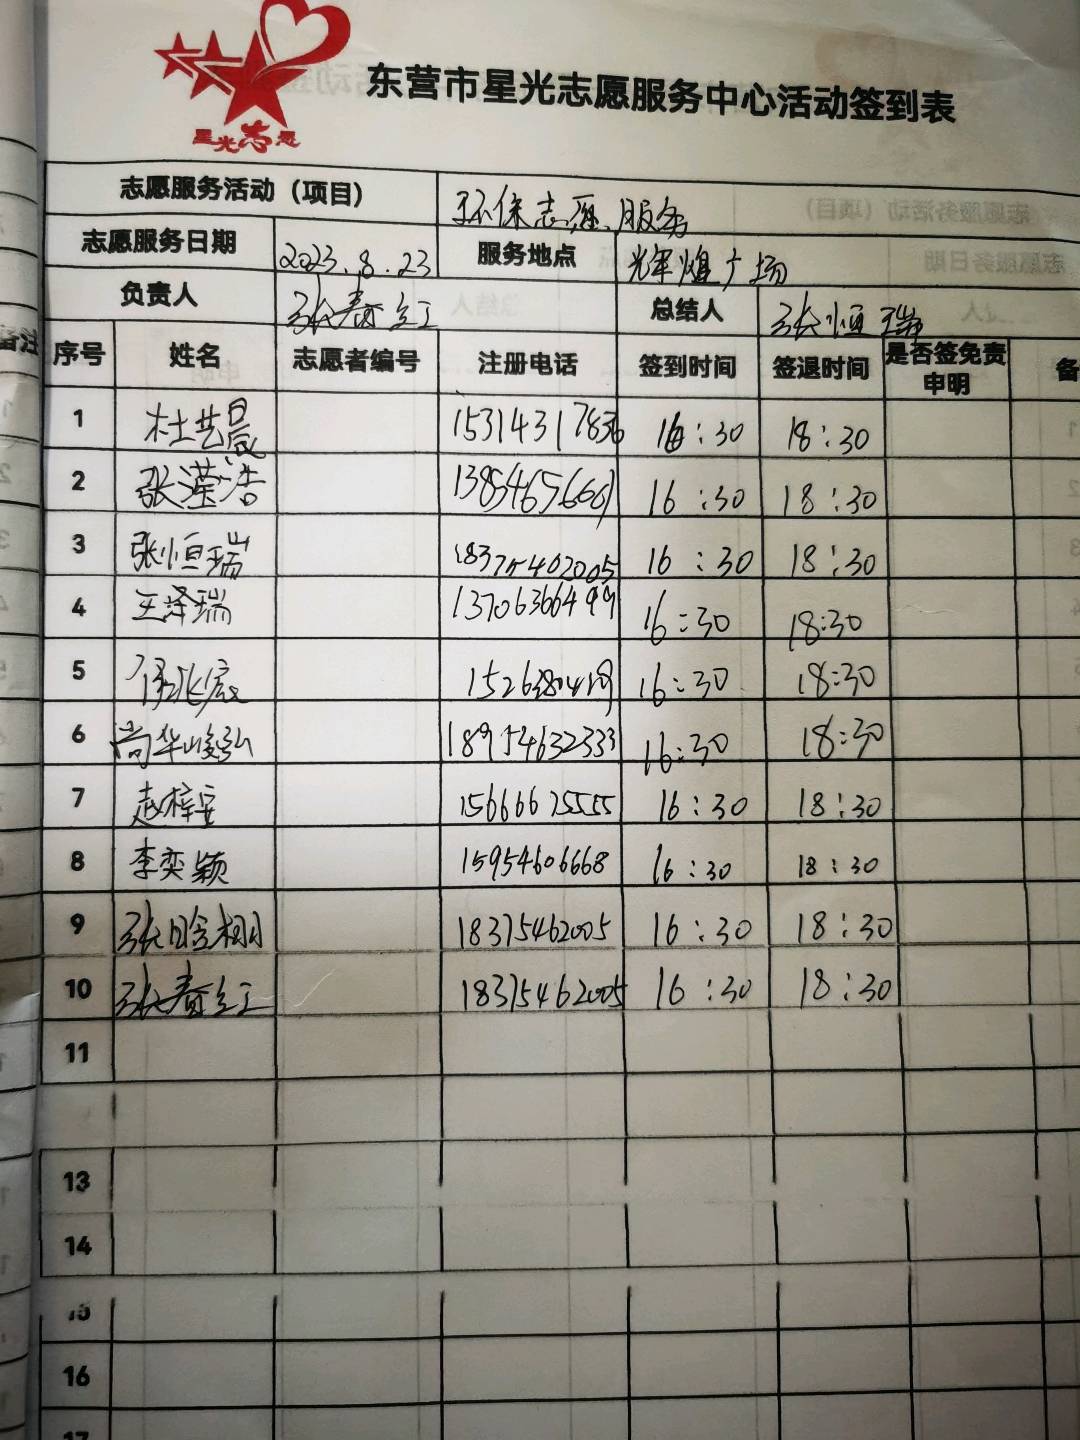 星光志愿
东营市星光志愿服务中心活动签到表
志愿服务活动（项目） 环保志愿服务
志愿服务日期 2023.8.23 服务地点 辉煌广场
负责人 张春红 总结人 张恒瑞
序号 姓名 志愿者编号 注册电话 签到时间 签退时间 是否签免责申明 备
1 杜艺晨 15314317836 16:30 18:30
2 张滢浩 13854656661 16:30 18:30
3 张恒瑞 18375462005 16:30 18:30
4 王泽瑞 13706366499 16:30 18:30
5 16:30 18:30
6 尚华峻弘 18954632333 16:30 18:30
7 赵梓安 15666675555 16:30 18:30
8 李奕颖 15954606668 16:30 18:30
9 张晗栩 18375462005 16:30 18:30
10 张春红 18375462005 16:30 18:30
11
13
14
15
16
17